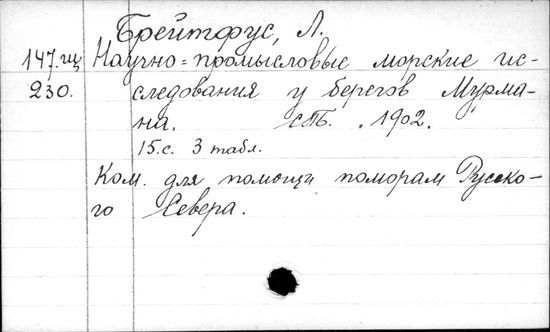 Брейтфус, Л.
147.щ Научно=промысловые морские ис-
230. следования у берегов Мурма-
на. СПБ. 1902.
15.с. 3 табл.
Ком. для помощи поморам Русско-
го Севера.